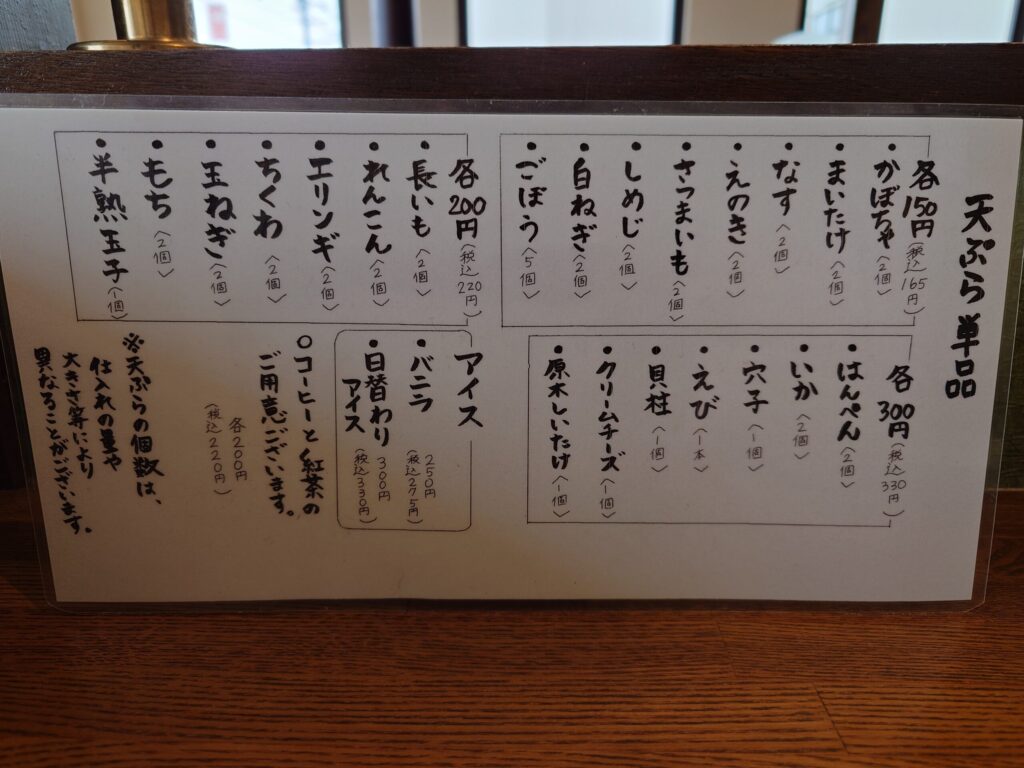 天ぷら 単品
各150円(税込165円)
・かぼちゃ〈2個〉
・まいたけ〈2個〉
・なす〈2個〉
・えのき〈2個〉
・さつまいも〈2個〉
・しめじ〈2個〉
・白ねぎ〈2個〉
・ごぼう〈5個〉
各200円(税込220円)
・長いも〈2個〉
・れんこん〈2個〉
・エリンギ〈2個〉
・ちくわ〈2個〉
・玉ねぎ〈2個〉
・もち〈2個〉
・半熟玉子〈1個〉
各300円(税込330円)
・はんぺん〈2個〉
・いか〈2個〉
・穴子〈1個〉
・えび〈1本〉
・貝柱〈1個〉
・クリームチーズ〈1個〉
・原木しいたけ〈1個〉
アイス
・バニラ 250円(税込275円)
・日替わりアイス 300円(税込330円)
○コーヒーと紅茶の
ご用意ございます。
各200円
(税込220円)
※天ぷらの個数は、
仕入れの量や
大きさ等により
異なることがございます。